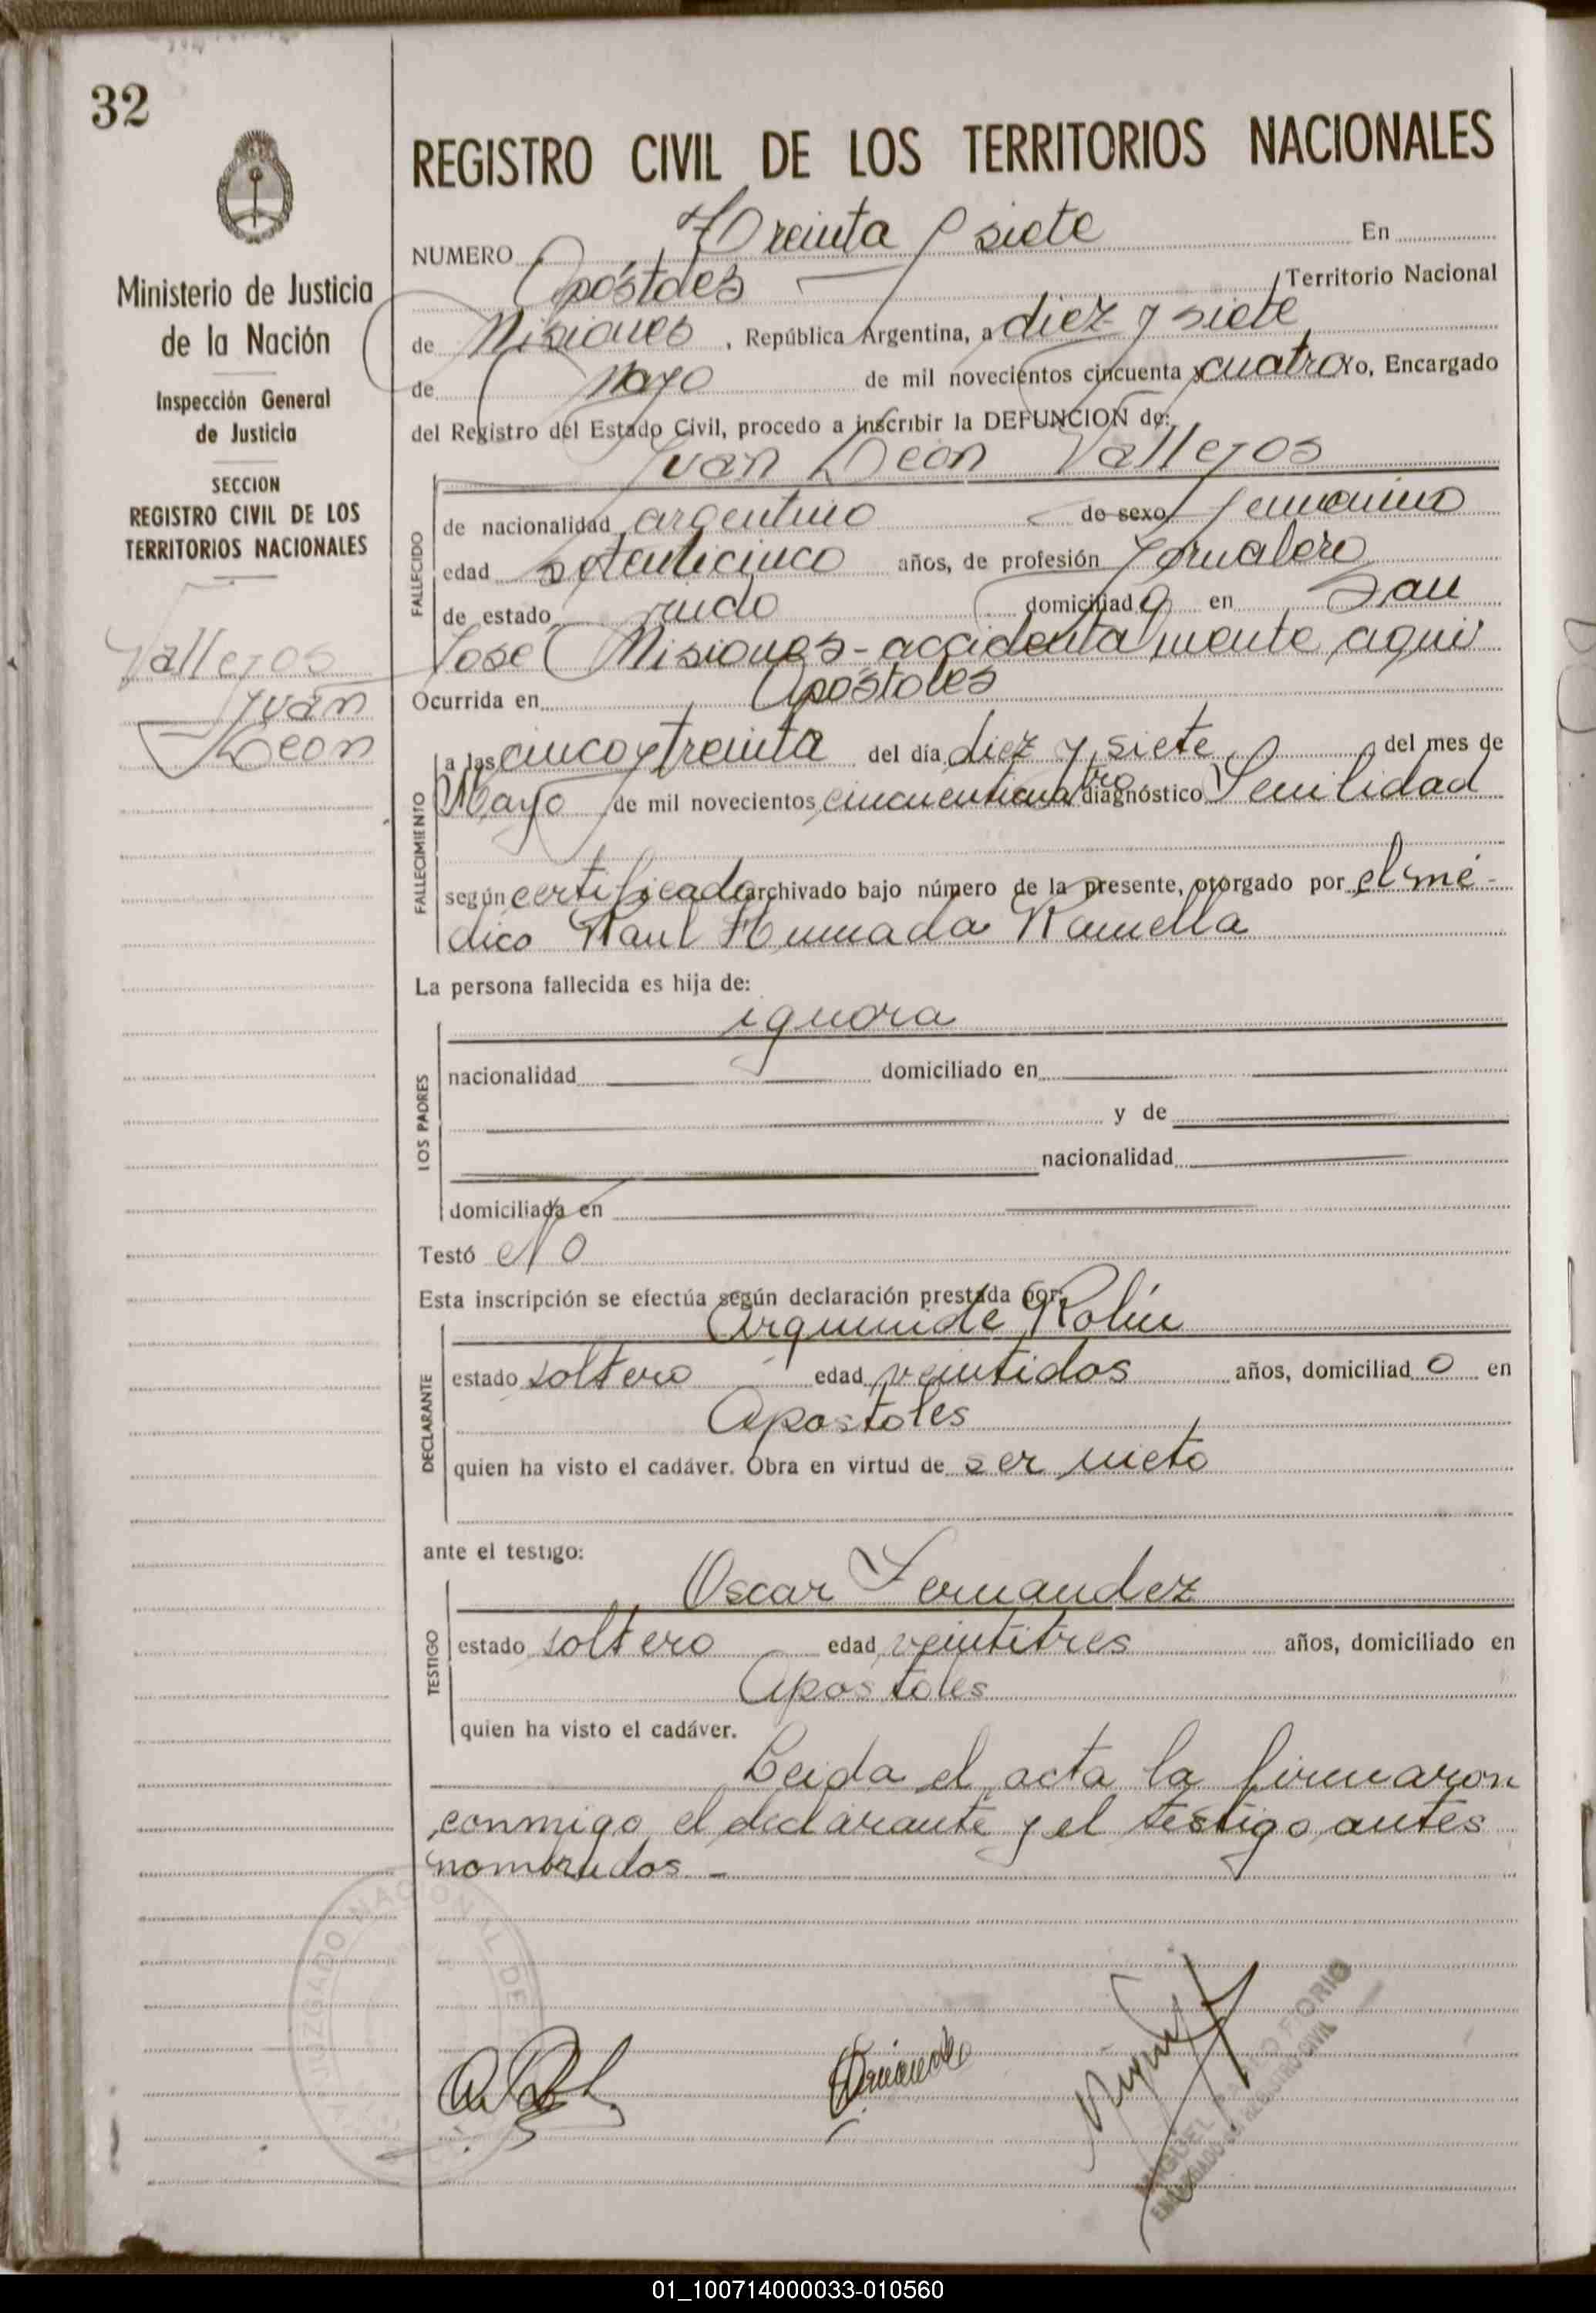 32
REGISTRO CIVIL DE LOS TERRITORIOS NACIONALES
Ministerio de Justicia
de la Nación
Inspección General
de Justicia
SECCION
REGISTRO CIVIL DE LOS
TERRITORIOS NACIONALES
Vallejos
Juan
Leon
NUMERO Treinta y siete En
Apóstoles Territorio Nacional
de Misiones, República Argentina, a diez y siete
de Mayo de mil novecientos cincuenta y cuatro yo, Encargado
del Registro del Estado Civil, procedo a inscribir la DEFUNCION de:
Juan Leon Vallejos
FALLECIDO
de nacionalidad argentino de sexo femenino
edad setenticinco años, de profesión Jornalero
de estado viudo domiciliado en San
José Misiones - accidentalmente aqui
Ocurrida en Apóstoles
FALLECIMIENTO
a las cinco y treinta del día diez y siete del mes de
Mayo de mil novecientos cincuenticuatro diagnóstico Senilidad
según certificado archivado bajo número de la presente, otorgado por el mé-
dico Raul Humada Ramella
La persona fallecida es hija de:
ignora
LOS PADRES
nacionalidad domiciliado en
y de
nacionalidad
domiciliada en
Testó No
Esta inscripción se efectúa según declaración prestada por:
Argimide Rolin
DECLARANTE
estado soltero edad veintidos años, domiciliado en
Apostoles
quien ha visto el cadáver. Obra en virtud de ser nieto
ante el testigo:
Oscar Fernandez
TESTIGO
estado soltero edad veintitres años, domiciliado en
Apostoles
quien ha visto el cadáver.
Leida el acta la firmaron
conmigo el declarante y el testigo antes
nombrados -
JUZGADO NACIONAL DE
MIGUEL FIORIO
ENCARGADO DEL REGISTRO CIVIL
01_100714000033-010560